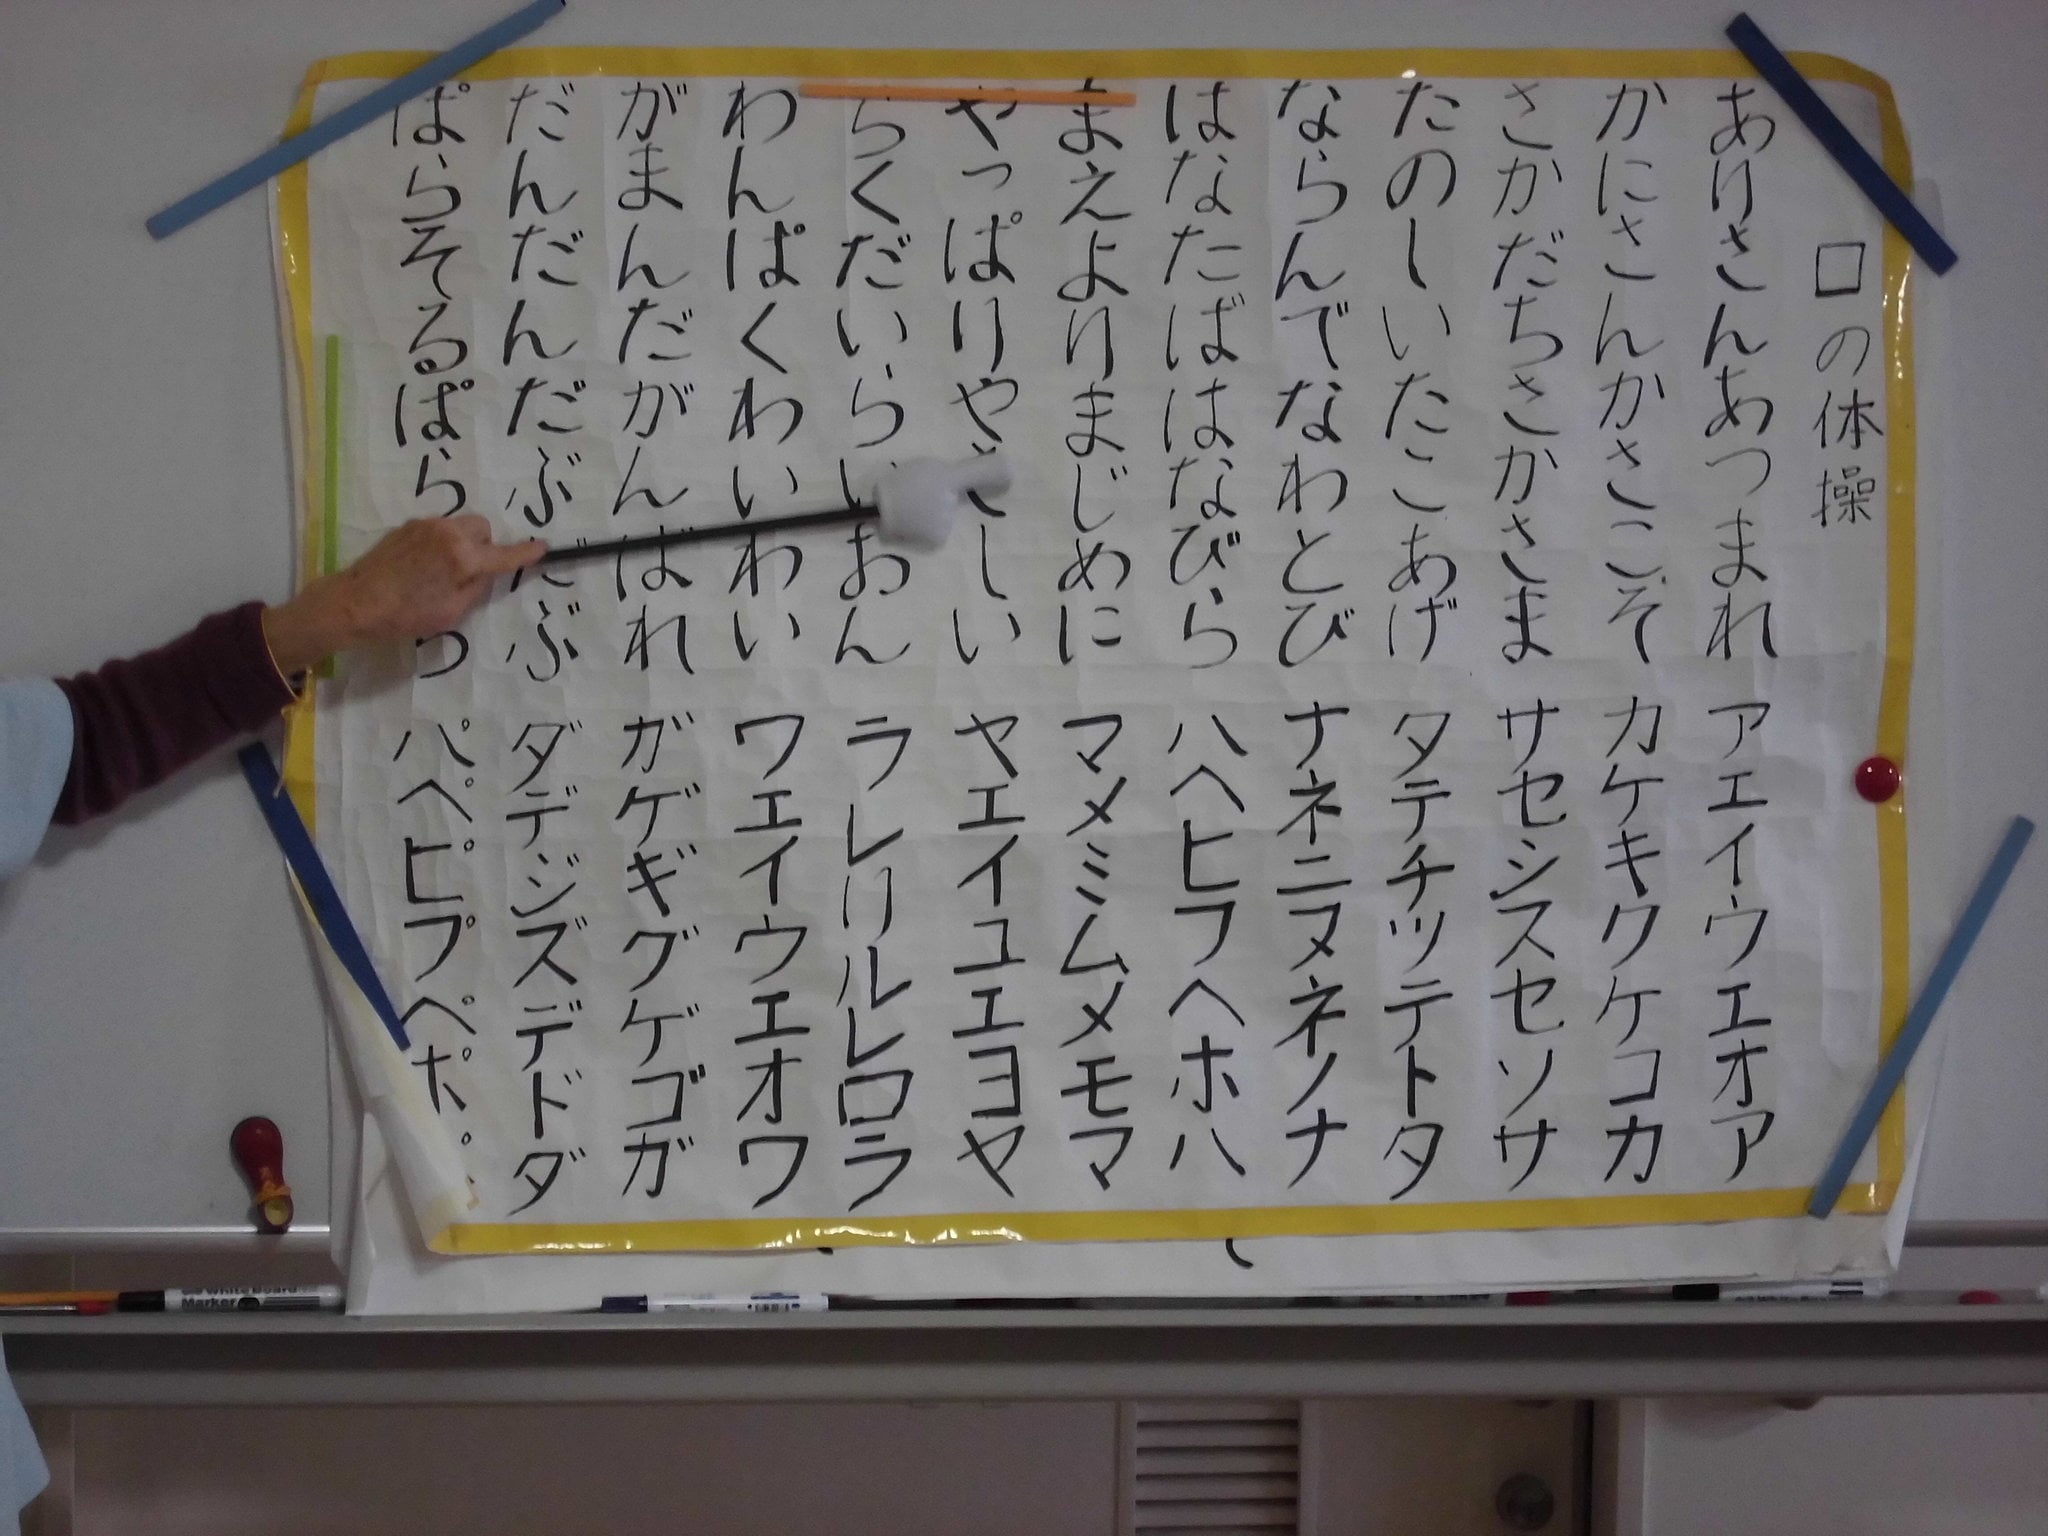 口の体操
ありさんあつまれ アエイウエオア
かにさんかさこそ カケキクケコカ
さかだちさかさま サセシスセソサ
たのしいたこあげ タテチツテトタ
ならんでなわとび ナネニヌネノナ
はなたばはなびら ハヘヒフヘホハ
まえよりまじめに マメミムメモマ
やっぱりやさしい ヤエイユエヨヤ
らくだいらいおん ラレリルレロラ
わんぱくわいわい ワエイウエオワ
がまんだがんばれ ガゲギグゲゴガ
だんだんだぶだぶ ダデジズデドダ
ぱらそるぱら パペピプペポ
White Board Marker